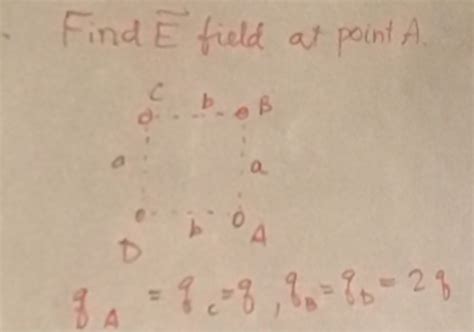 Find E⃗ field at point A.
C b B
a a
D b A
q_A = q_c = q, q_B = q_D = 2q